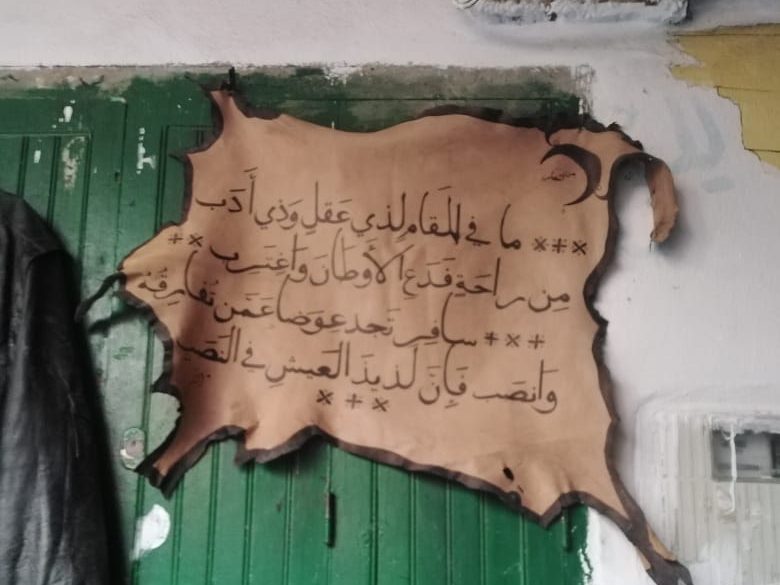 ما في المَقامِ لِذي عَقلٍ وَذي أَدَب
مِن راحَةٍ فَدَعِ الأَوطانَ وَاِغتَرِب
سافِر تَجِد عِوَضاً عَمَّن تُفارِقُهُ
وَاِنصَب فَإِنَّ لَذيذَ العَيشِ في النَصَبِ